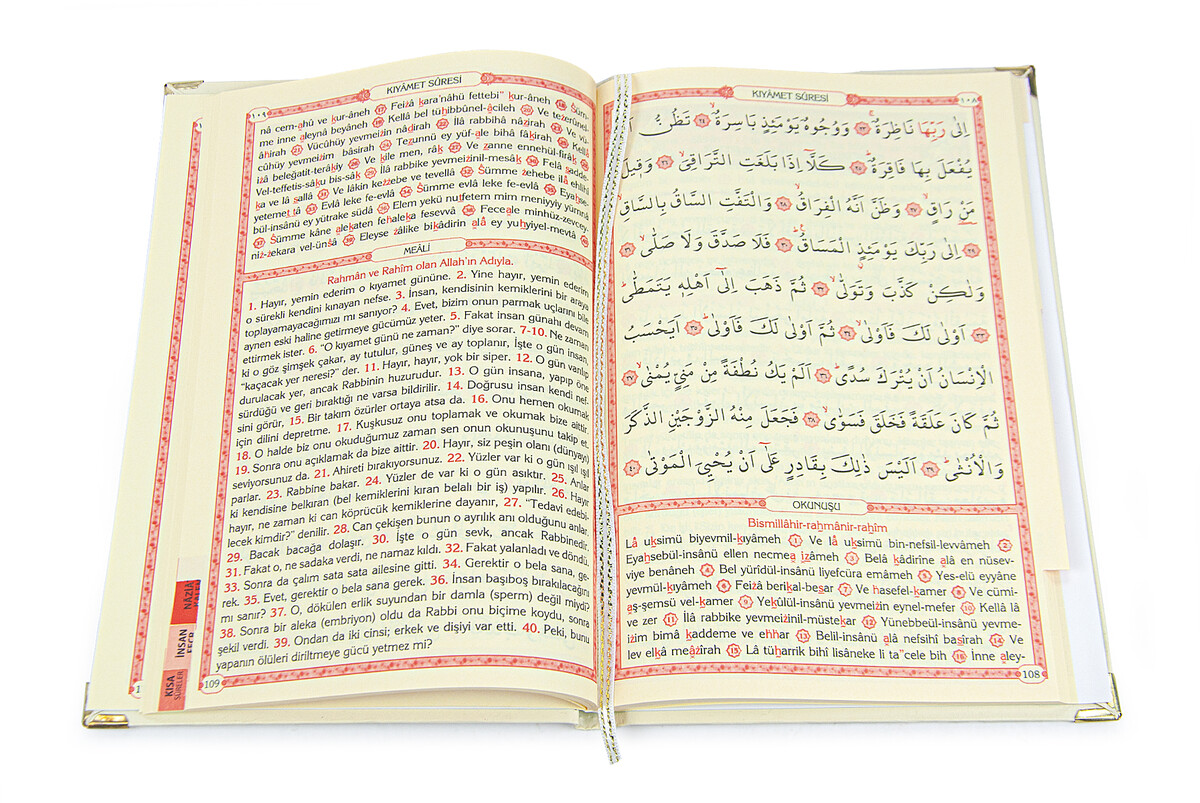 KIYÂMET SÛRESİ
١٠٨
اِلٰى رَبِّهَا نَاظِرَةٌۚ ﴿٢٣﴾ وَوُجُوهٌ يَوْمَئِذٍ بَاسِرَةٌۙ ﴿٢٤﴾ تَظُنُّ
يُفْعَلَ بِهَا فَاقِرَةٌۜ ﴿٢٥﴾ كَلَّٓا اِذَا بَلَغَتِ التَّرَاقِيَۙ ﴿٢٦﴾ وَق۪يلَ
مَنْ رَاقٍۙ ﴿٢٧﴾ وَظَنَّ اَنَّهُ الْفِرَاقُۙ ﴿٢٨﴾ وَالْتَفَّتِ السَّاقُ بِالسَّاقِۙ
﴿٢٩﴾ اِلٰى رَبِّكَ يَوْمَئِذٍ الْمَسَاقُۜ ﴿٣٠﴾ فَلَا صَدَّقَ وَلَا صَلّٰىۙ ﴿٣١﴾
وَلٰكِنْ كَذَّبَ وَتَوَلّٰىۙ ﴿٣٢﴾ ثُمَّ ذَهَبَ اِلٰٓى اَهْلِه۪ يَتَمَطّٰىۜ
﴿٣٣﴾ اَوْلٰى لَكَ فَاَوْلٰىۙ ﴿٣٤﴾ ثُمَّ اَوْلٰى لَكَ فَاَوْلٰىۜ ﴿٣٥﴾ اَيَحْسَبُ
الْاِنْسَانُ اَنْ يُتْرَكَ سُدًىۜ ﴿٣٦﴾ اَلَمْ يَكُ نُطْفَةً مِنْ مَنِيٍّ يُمْنٰىۙ ﴿٣٧﴾
ثُمَّ كَانَ عَلَقَةً فَخَلَقَ فَسَوّٰىۙ ﴿٣٨﴾ فَجَعَلَ مِنْهُ الزَّوْجَيْنِ الذَّكَرَ
وَالْاُنْثٰىۜ ﴿٣٩﴾ اَلَيْسَ ذٰلِكَ بِقَادِرٍ عَلٰٓى اَنْ يُحْيِيَ الْمَوْتٰى ﴿٤٠﴾
OKUNUŞU
Bismillâhir-rahmânir-rahîm
Lâ uksimü biyevmil-kıyâmeh 1 Ve lâ uksimü bin-nefsil-levvâmeh 2
Eyahsebül-insânü ellen necmea izâmeh 3 Belâ kâdirîne alâ en nüsev-
viye benâneh 4 Bel yürîdül-insânü liyefcüra emâmeh 5 Yes-elü eyyâne
yevmül-kıyâmeh 6 Feizâ berikal-besar 7 Ve hasefel-kamer 8 Ve cümi-
aş-şemsü vel-kamer 9 Yekûlül-insânü yevmeizin eynel-mefer 10 Kellâ lâ
ve zer 11 İlâ rabbike yevmeizinil-müstekar 12 Yünebbeül-insânü yevme-
izim bimâ kaddeme ve ehhar 13 Belil-insânü alâ nefsihî basîrah 14 Ve
lev elkâ meâzîrah 15 Lâ tüharrik bihî lisâneke li ta"cele bih 16 İnne aley-
108
KIYÂMET SÛRESİ
١٠٩
nâ cem-ahû ve kur-âneh 17 Feizâ kara'nâhü fettebi" kur-âneh 18 Süm-
me inne aleynâ beyâneh 19 Kellâ bel tühibbûnel-âcileh 20 Ve tezerûnel-
âhirah 21 Vücûhüy yevmeizin nâdirah 22 İlâ rabbihâ nâzirah 23 Ve vü-
cûhüy yevmeizim bâsirah 24 Tezunnü ey yüf-ale bihâ fâkirah 25 Kellâ
izâ beleğatit-terâkiy 26 Ve kîle men, râk 27 Ve zanne ennehül-firâk 28
Vel-teffetis-sâku bis-sâk 29 İlâ rabbike yevmeizinil-mesâk 30 Felâ sadde-
ka ve lâ sallâ 31 Ve lâkin kezzebe ve tevellâ 32 Sümme zehebe ilâ ehlihî
yetemettâ 33 Evlâ leke fe-evlâ 34 Sümme evlâ leke fe-evlâ 35 Eyahse-
bül-insânü ey yütrake südâ 36 Elem yekü nutfetem mim meniyyiy yümnâ
37 Sümme kâne alekaten fehaleka fesevvâ 38 Feceale minhüz-zevcey-
niz-zekara vel-ünsâ 39 Eleyse zâlike bikâdirin alâ ey yuhyiyel-mevtâ 40
MEÂLİ
Rahmân ve Rahîm olan Allah'ın Adıyla.
1. Hayır, yemin ederim o kıyamet gününe. 2. Yine hayır, yemin ederim
o sürekli kendini kınayan nefse. 3. İnsan, kendisinin kemiklerini bir araya
toplayamayacağımızı mı sanıyor? 4. Evet, bizim onun parmak uçlarını bile
aynen eski haline getirmeye gücümüz yeter. 5. Fakat insan günahı devam
ettirmek ister. 6. "O kıyamet günü ne zaman?" diye sorar. 7-10. Ne zaman
ki o göz şimşek çakar, ay tutulur, güneş ve ay toplanır, İşte o gün insan,
"kaçacak yer neresi?" der. 11. Hayır, hayır, yok bir siper. 12. O gün varılıp
durulacak yer, ancak Rabbinin huzurudur. 13. O gün insana, yapıp öne
sürdüğü ve geri bıraktığı ne varsa bildirilir. 14. Doğrusu insan kendi nef-
sini görür, 15. Bir takım özürler ortaya atsa da. 16. Onu hemen okumak
için dilini depretme. 17. Kuşkusuz onu toplamak ve okumak bize aittir.
18. O halde biz onu okuduğumuz zaman sen onun okunuşunu takip et.
19. Sonra onu açıklamak da bize aittir. 20. Hayır, siz peşin olanı (dünyayı)
seviyorsunuz da. 21. Ahireti bırakıyorsunuz. 22. Yüzler var ki o gün ışıl ışıl
parlar. 23. Rabbine bakar. 24. Yüzler de var ki o gün asıktır. 25. Anlar
ki kendisine belkıran (bel kemiklerini kıran belalı bir iş) yapılır. 26. Hayır
hayır, ne zaman ki can köprücük kemiklerine dayanır, 27. "Tedavi edebi-
lecek kimdir?" denilir. 28. Can çekişen bunun o ayrılık anı olduğunu anlar.
29. Bacak bacağa dolaşır. 30. İşte o gün sevk, ancak Rabbinedir.
31. Fakat o, ne sadaka verdi, ne namaz kıldı. 32. Fakat yalanladı ve döndü.
33. Sonra da çalım sata sata ailesine gitti. 34. Gerektir o bela sana, ge-
rek. 35. Evet, gerektir o bela sana gerek. 36. İnsan başıboş bırakılacağını
mı sanır? 37. O, dökülen erlik suyundan bir damla (sperm) değil miydi?
38. Sonra bir aleka (embriyon) oldu da Rabbi onu biçime koydu, sonra
şekil verdi. 39. Ondan da iki cinsi; erkek ve dişiyi var etti. 40. Peki, bunu
yapanın ölüleri diriltmeye gücü yetmez mi?
109
NÂZİA
İNSAN
FECR
KISA
SÛRELER